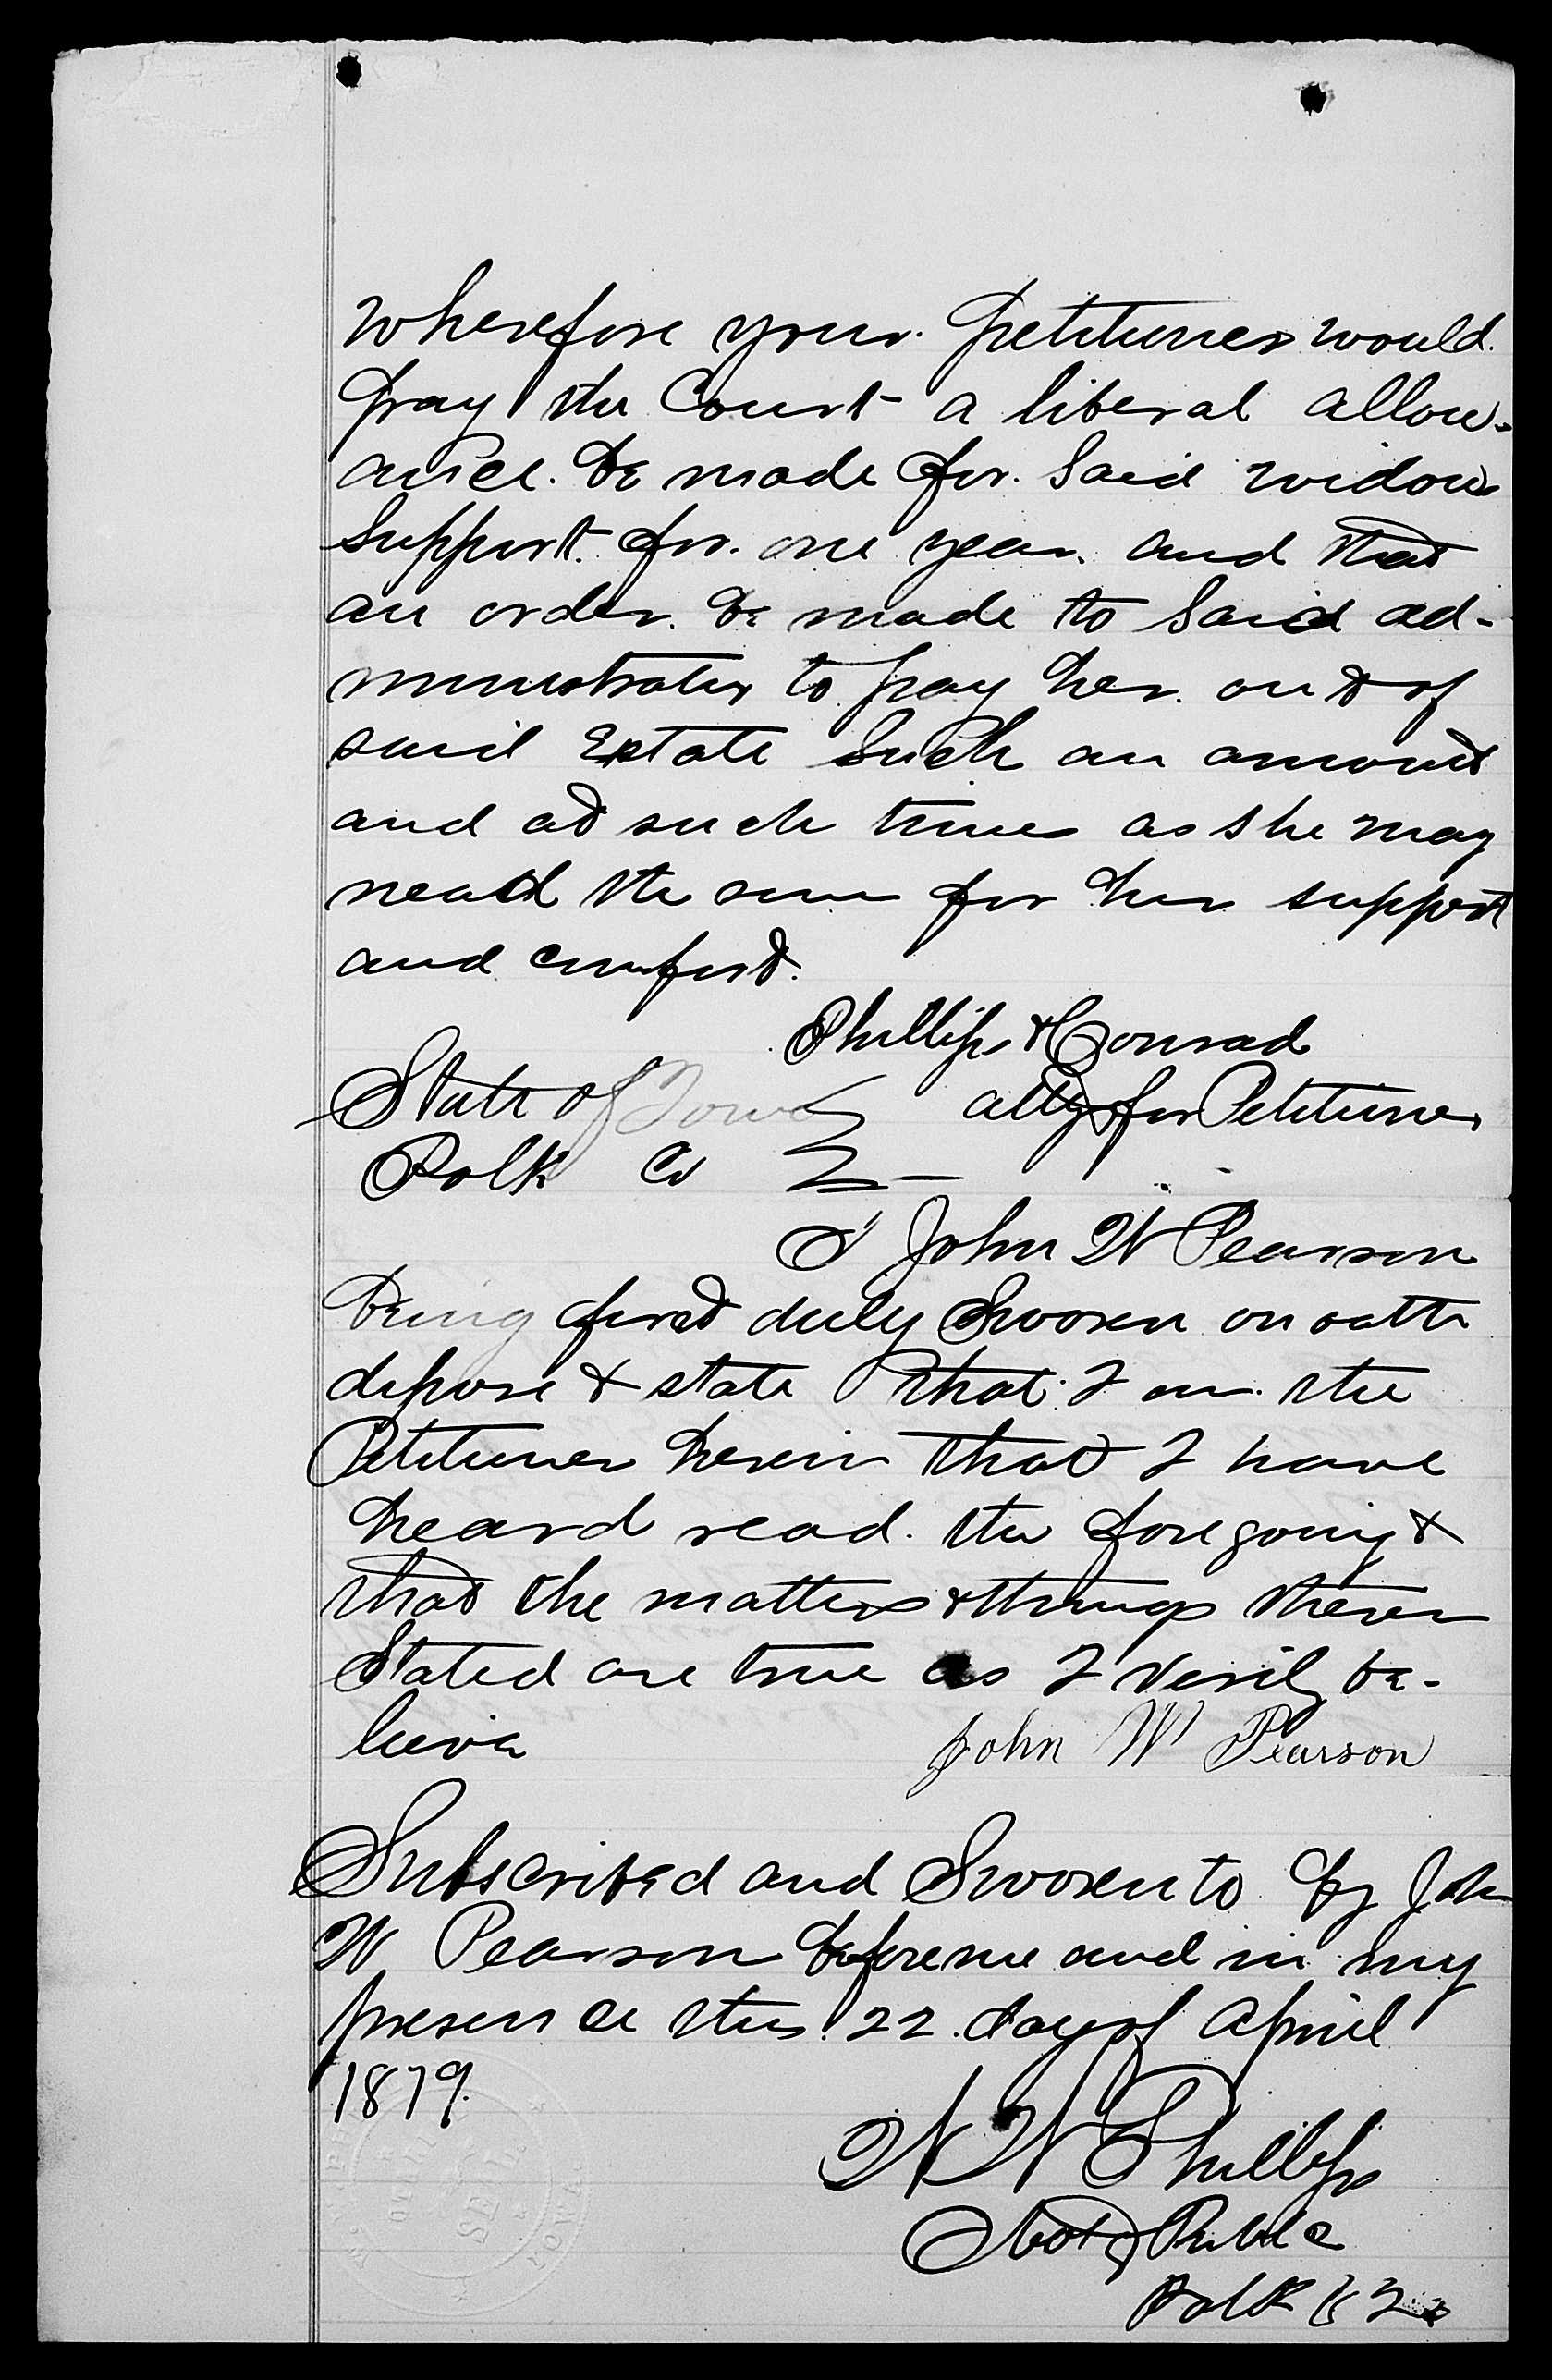 Wherefore your petitioner would
pray the Court a liberal allow-
ance be made for said widow
support for one year and that
an order be made to said ad-
ministrator to pay her out of
said Estate Such an amount
and at such times as she may
need the same for her support
and comfort.
Phillips & Conrad
State of Iowa attys for Petitioner
Polk Co
I John W Pearson
being first duly Sworen on oath
depose & state That I am the
Petitioner herein that I have
heard read the foregoing &
that the matters & things therein
Stated are true as I verily be-
lieve John W Pearson
Subscribed and Sworen to by John
W Pearson before me and in my
presence this 22 day of April
1879.
W W Phillips
Noty Public
Polk Co Ia
SEAL
IOWA